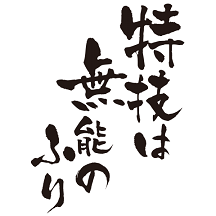 特技は
無能の
ふり